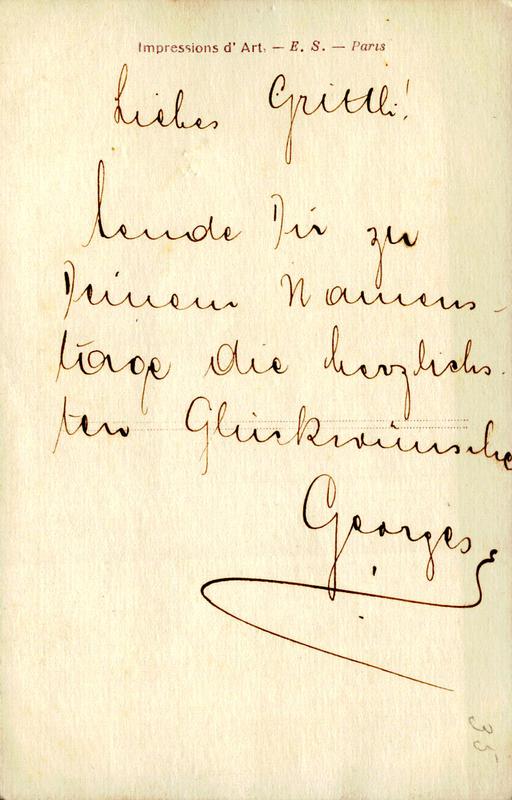 Impressions d' Art. — E. S. — Paris
Liebes Grittli!
Sende Dir zu
Deinem Namens-
tage die herzlichs-
ten Glückwünsche
Georges
35